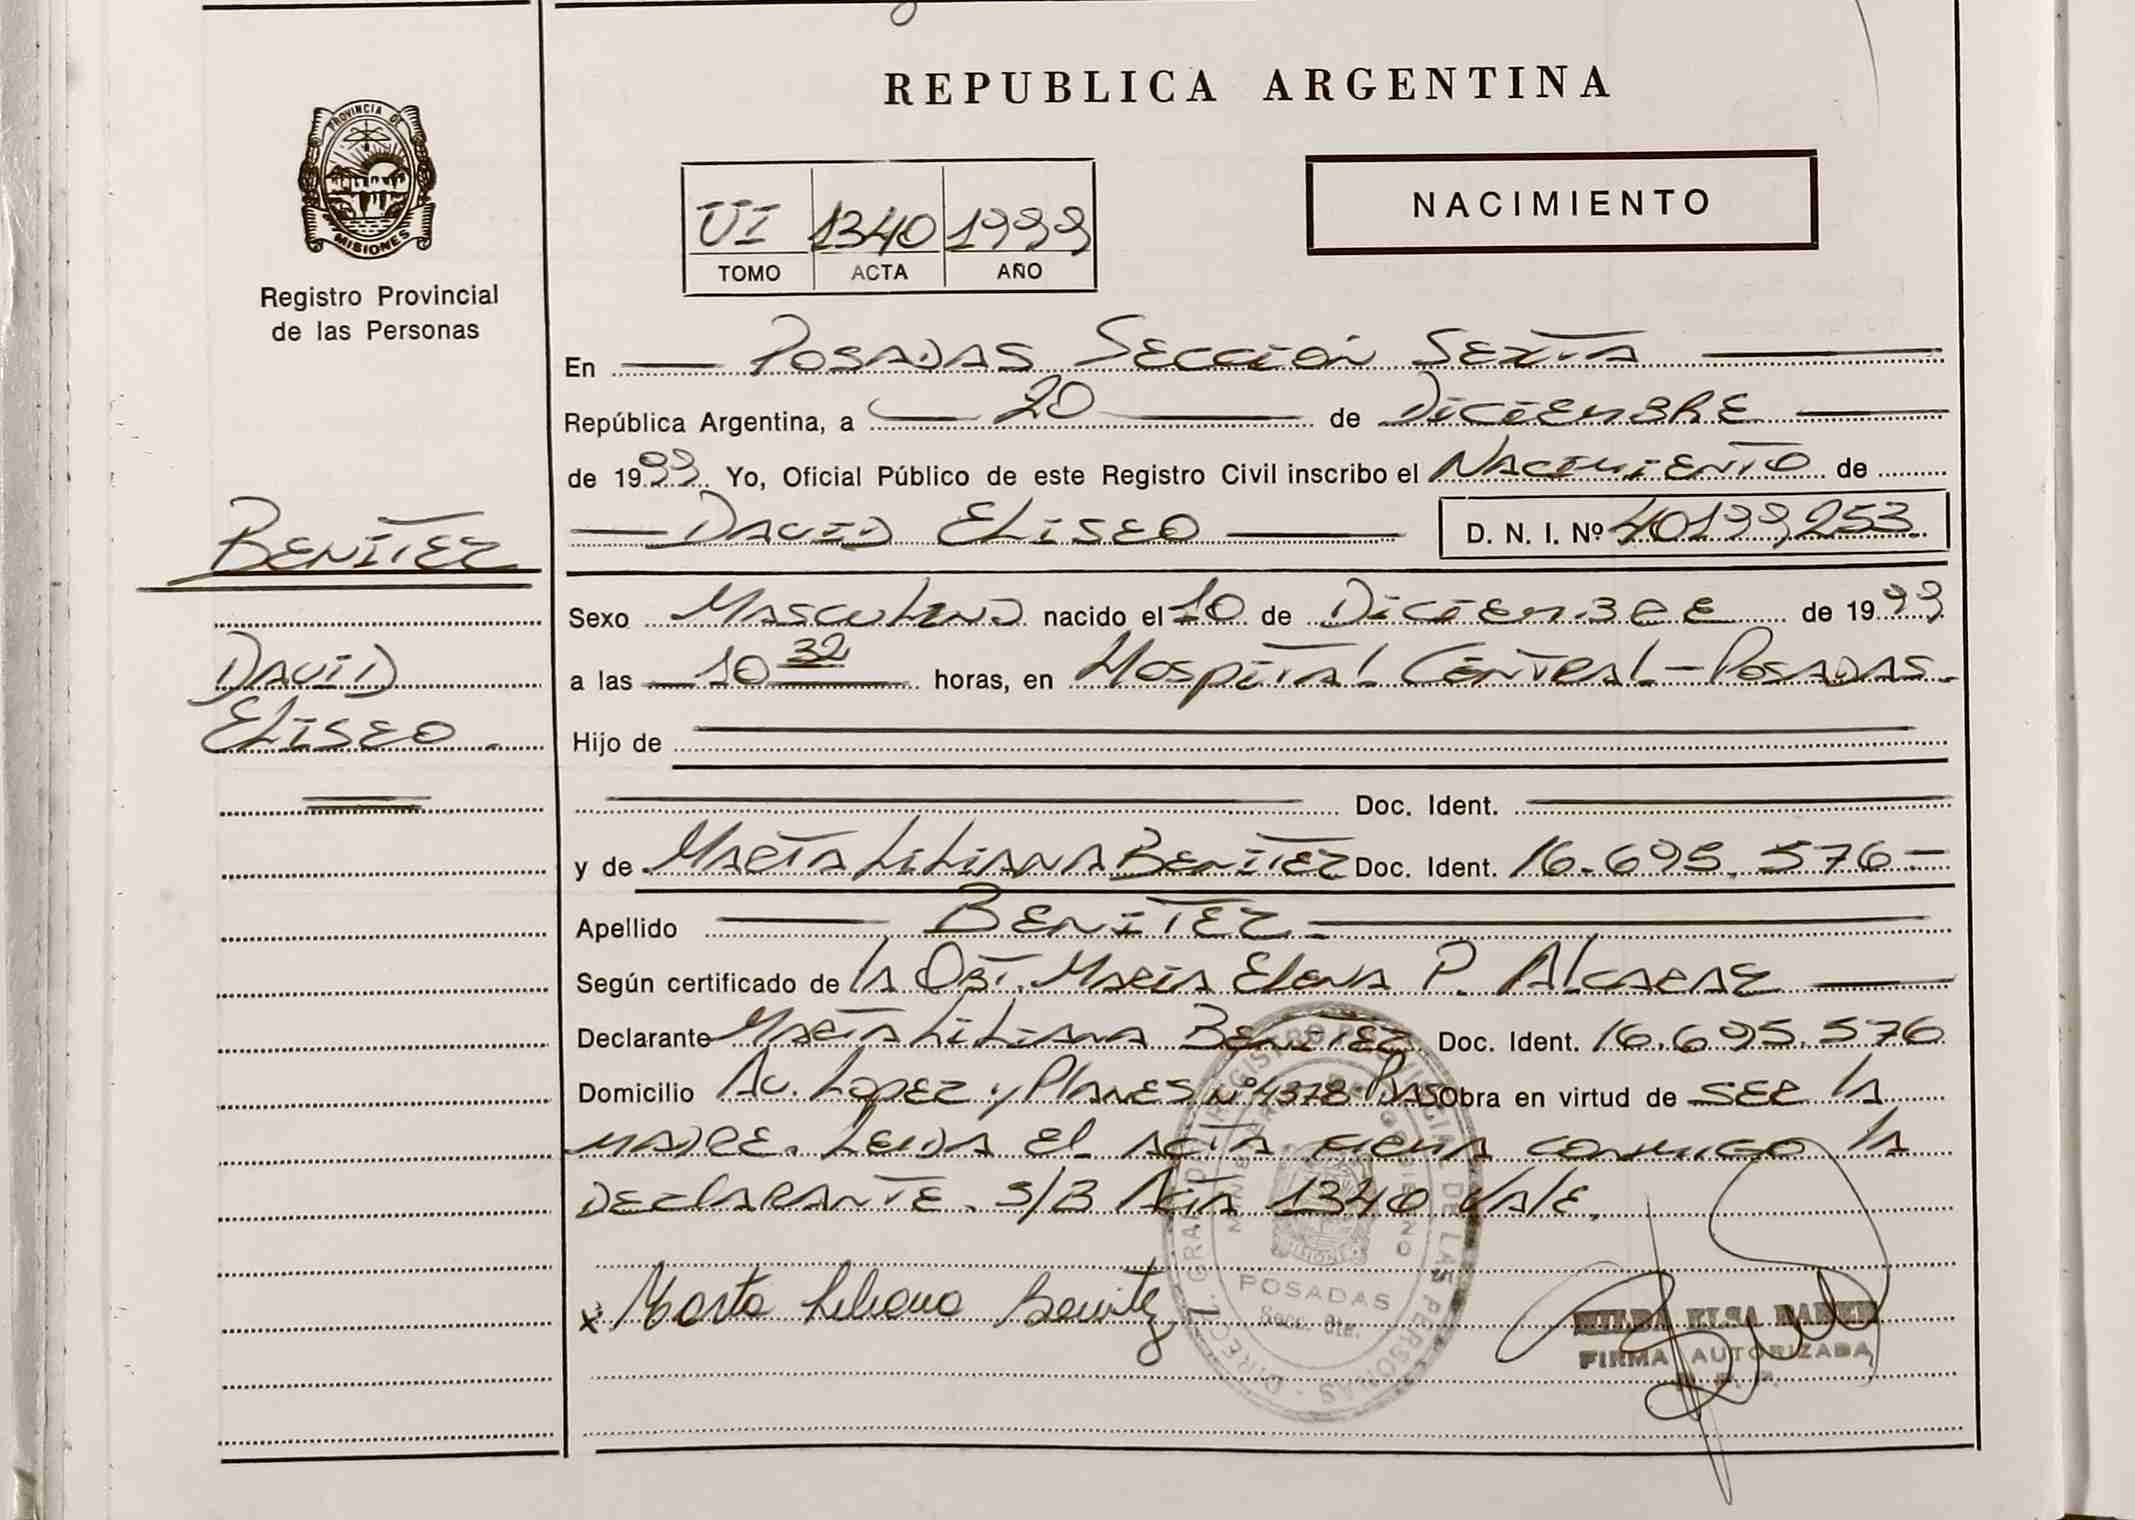 PROVINCIA DE
MISIONES
Registro Provincial
de las Personas
BENITEZ
DAVID
ELISEO.
REPUBLICA ARGENTINA
NACIMIENTO
VI 1340 1999
TOMO ACTA AÑO
En POSADAS SECCION SEXTA
República Argentina, a 20 de DICIEMBRE
de 1999 Yo, Oficial Público de este Registro Civil inscribo el NACIMIENTO de
DAVID ELISEO D. N. I. Nº 40199,253.
Sexo MASCULINO nacido el 10 de DICIEMBRE de 1999
a las 10 32 horas, en HOSPITAL CENTRAL - POSADAS.
Hijo de
Doc. Ident.
y de MARTA LILIANA BENITEZ Doc. Ident. 16.695.576-
Apellido BENITEZ
Según certificado de lA OBT. MARIA ELENA P. ALCARAZ
Declarante MARTA LILIANA BENITEZ Doc. Ident. 16.695.576
Domicilio AV. LOPEZ y PLANES Nº 4378 PDAS Obra en virtud de SER lA
MADRE. LEIDA El ACTA FIRMA CONMIGO lA
DECLARANTE. S/B ACTA 1340 VALE.
x Marta Liliana Benitez
DIREC. GRAL. REGISTRO PROVINCIAL DE LAS PERSONAS
POSADAS
Secc. 6ta.
HILDA ELSA
FIRMA AUTORIZADA